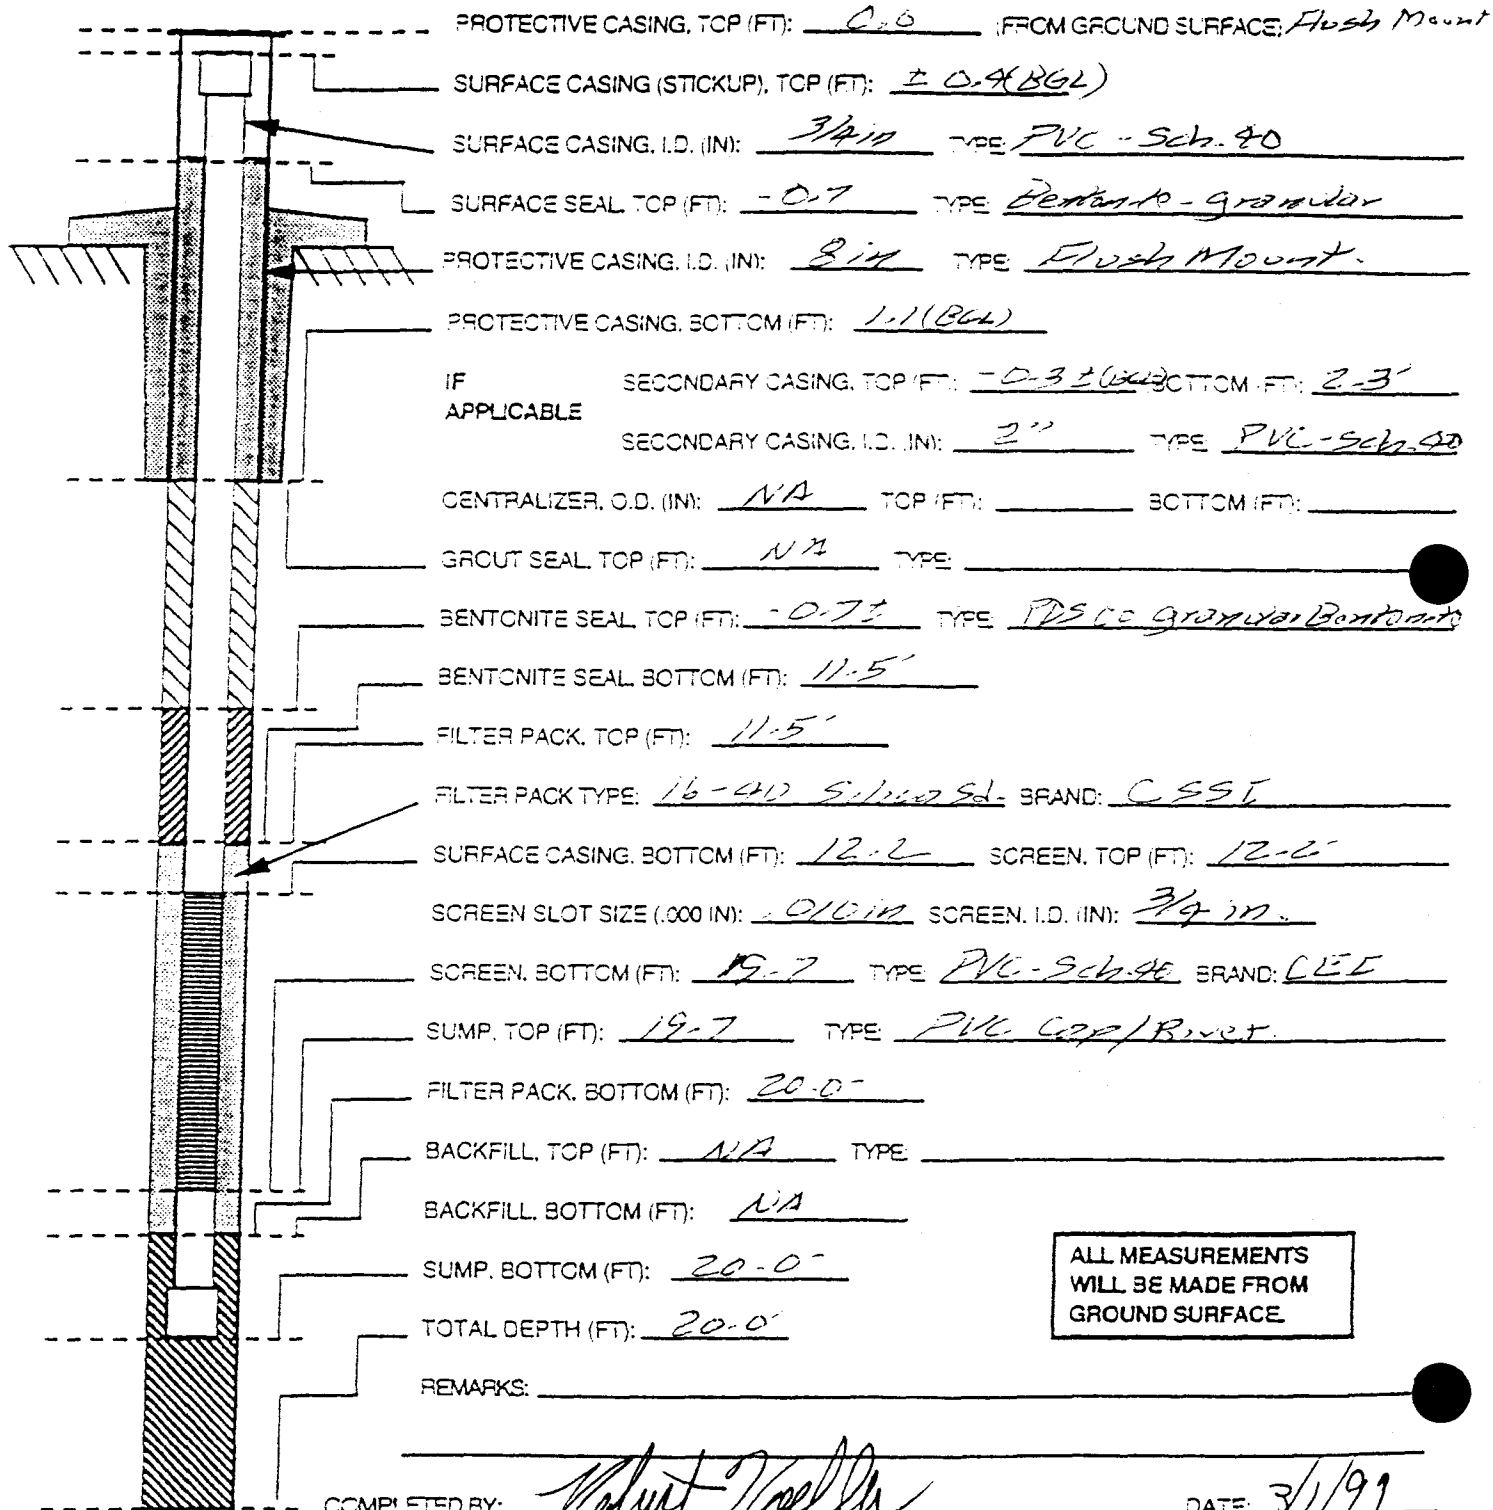 PROTECTIVE CASING, TOP (FT): 0.0 (FROM GROUND SURFACE; Flush Mount
SURFACE CASING (STICKUP), TOP (FT): ± 0.4(BGL)
SURFACE CASING, I.D. (IN): 3/4in TYPE: PVC - Sch. 40
SURFACE SEAL, TOP (FT): -0.7 TYPE: Bentonite - granular
PROTECTIVE CASING, I.D. (IN): 8 in TYPE: Flush Mount.
PROTECTIVE CASING, BOTTOM (FT): 1.1(BGL)
IF APPLICABLE
SECONDARY CASING, TOP (FT): -0.3 ± BOTTOM (FT): 2.3'
SECONDARY CASING, I.D. (IN): 2" TYPE: PVC-Sch.40
CENTRALIZER, O.D. (IN): NA TOP (FT): BOTTOM (FT):
GROUT SEAL, TOP (FT): NA TYPE:
BENTONITE SEAL, TOP (FT): -0.7± TYPE: PDS co granular Bentonite
BENTONITE SEAL, BOTTOM (FT): 11.5'
FILTER PACK, TOP (FT): 11.5'
FILTER PACK TYPE: 16-40 Silica Sd. BRAND: CSSI
SURFACE CASING, BOTTOM (FT): 12.2 SCREEN, TOP (FT): 12.2'
SCREEN SLOT SIZE (.000 IN): .010in SCREEN, I.D. (IN): 3/4 in.
SCREEN, BOTTOM (FT): 19.7 TYPE: PVC-Sch.40 BRAND: CEI
SUMP, TOP (FT): 19.7 TYPE: PVC Cap/Rivet.
FILTER PACK, BOTTOM (FT): 20.0'
BACKFILL, TOP (FT): NA TYPE:
BACKFILL, BOTTOM (FT): NA
SUMP, BOTTOM (FT): 20.0'
ALL MEASUREMENTS
WILL BE MADE FROM
GROUND SURFACE.
TOTAL DEPTH (FT): 20.0'
REMARKS:
COMPLETED BY: Robert DATE: 3/1/99